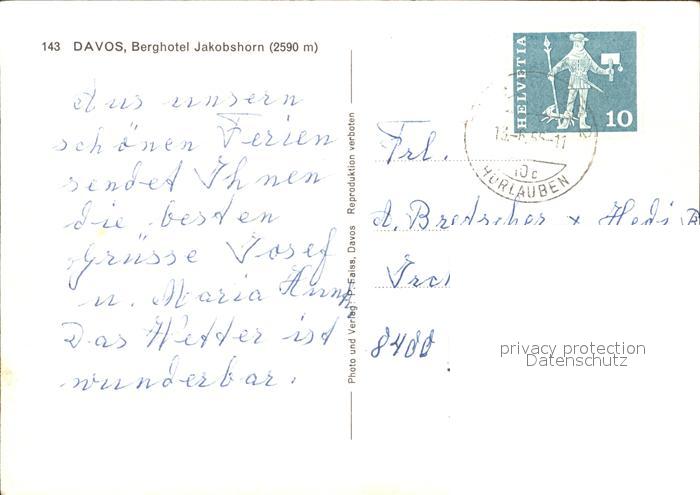 143 DAVOS, Berghotel Jakobshorn (2590 m)
Aus unsern
schönen Ferien
sendet Ihnen
die besten
Grüsse Josef
u. Maria
Das Wetter ist
wunderbar.
Photo und Verlag: P. Faiss, Davos Reproduktion verboten
HELVETIA
10
HORLAUBEN
Frl.
A. Bretscher + Hedi B
8400
privacy protection
Datenschutz